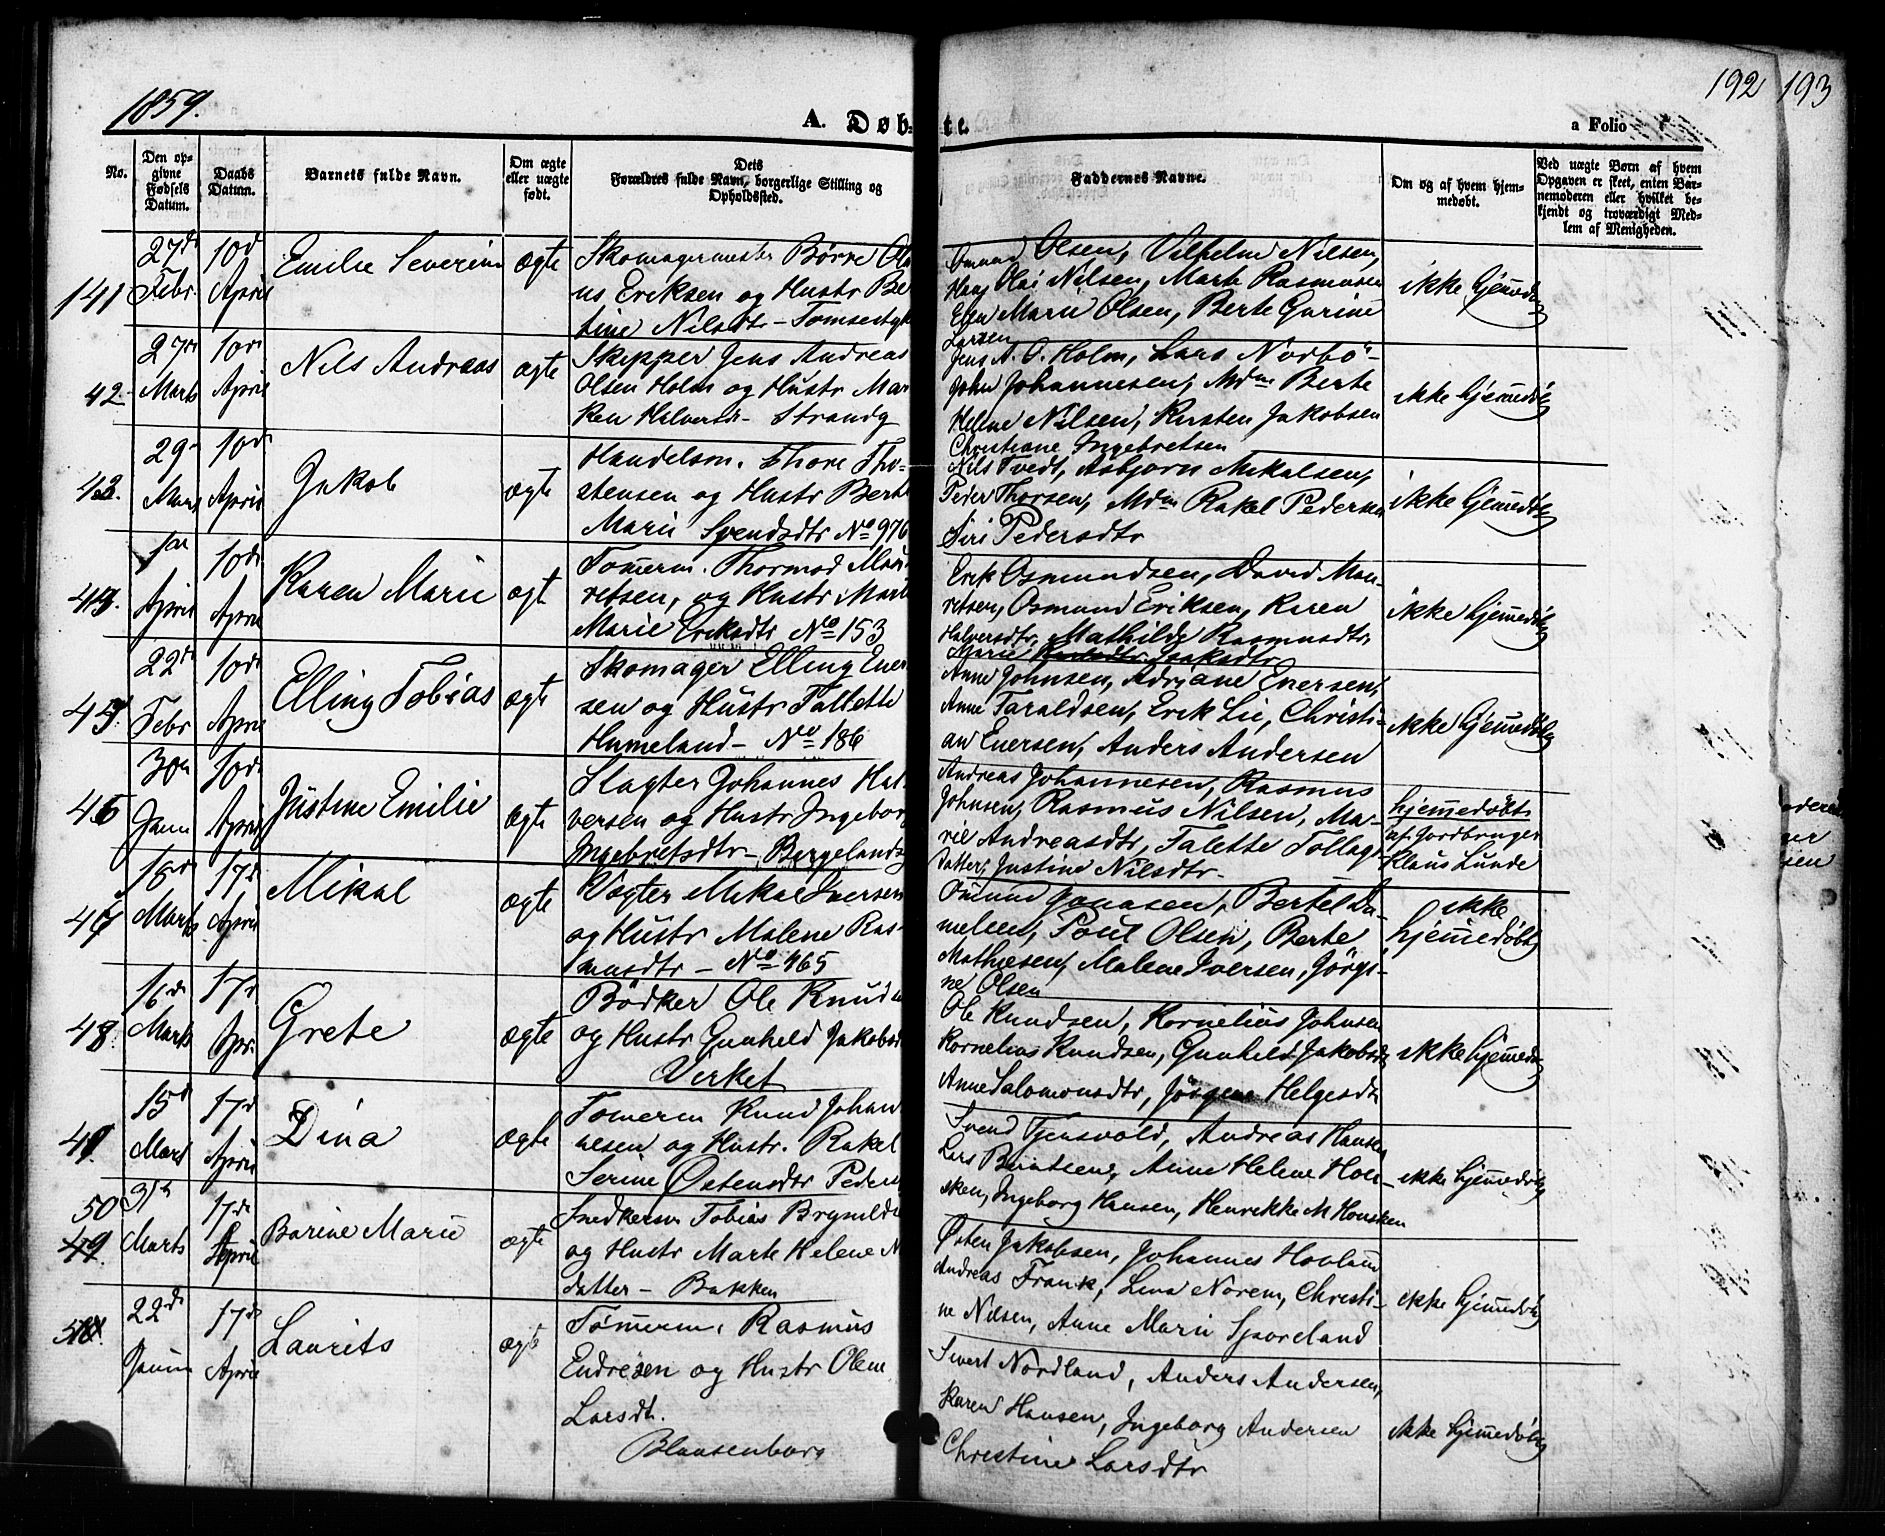 1859.
192 193
A. Døbte.
a Folio
No.
Den opgivne Fødsels Datum.
Daabs Datum.
Barnets fulde Navn.
Om ægte eller uægte født.
Dets Forældres fulde Navn, borgerlige Stilling og Opholdssted.
Faddernes Navne.
Om og af hvem hjemmedøbt.
Ved uægte Børn af hvem Opgaven er skeet, enten Barnemoderen eller hvilket bekjendt og troværdigt Medlem af Menigheden.
141
27d Febr
10d April
Emilie Severine
ægte
Skomagermester Børre Ola
us Eriksen og Hustr Be
tine Nilsdtr -
Omund Olsen, Vilhelm Nilsen,
Hans Olai Nilsen, Marte Rasmusen
Elen Marie Olsen, Berte Gurine
Larsen
ikke hjemedøbt
42.
27de Marts
10de April
Nils Andreas
ægte
Skipper Jens Andreas
Olsen Holm og Hustr Mar
ken Halversdr - Strandg
Jens A. O. Holm, Lars Nórbö -
John Johannesen, Mdm Berte
Helene Nilsen, Kirsten Jakobsen
Christiane Ingebretsen
ikke hjemedøbt
43.
29
10d April
Jakob
ægte
Handelsm. Thore Tho-
stensen og Hustr Berte
Marie Svendsdtr No 976
Nils Tvedt, Asbjørn Mikalsen,
Peder Thorsen, Mdm Rakel Pedersen
Siri Pedersdtr
ikke hjemedøbt
44.
1ste April
10de April
Karen Marie
ægt
Tømerm. Thormod Mau
ritsen, og Hustr Marte
Marie Eriksdtr No 153
Erik Osmundsen, David Mau-
ritsen, Osmund Eriksen, Karen
Halversdtr, Mathilde Rasmusdtr
Marie Isaksdtr
ikke hjemedøbt
45.
22d Febr
10de April
Elling Tobias
ægte
Skomager Elling Ener
sen og Hustr Tallette
Humeland - No 186
Anne Johnsen, Adriane Enersen,
Anne Taraldsen, Erik Lie, Christi-
an Enersen, Anders Andersen
ikke hjemedøbt
46
30te Janu
10de April
Justine Emilie
ægte
Slagter Johannes Hal-
versen og Hustr Ingeborg
Ingebretsdtr - Bergelandsg
Andreas Johannesen, Rasmus
Johnsen, Rasmus Nilsen, Ma-
rie Andreasdtr, Talette Tollags
datter, Justine Nilsdtr -
hjemmedøbt
af Jordbruger
Klaus Lunde
47
16d Marts
17d April
Mikal
ægte
Vogter Mikal Iversen
og Hustr Malene Ras-
musdtr - No 465
Omund Jonasen, Bertel Da-
nielsen, Poul Olsen, Berte
Mathiesen, Malene Iversen, Jörgi-
ne Olsen
ikke
hjemedøbt
48
16de Marts
17d Apr
Grete
ægte
Bödker Ole Knudse
og Hustr Gunhild Jakobsd
Virket
Ole Knudsen, Kornelius Johnsen
Kornelius Knudsen, Gunhild Jakobsdtr
Anne Salomonsdtr, Jörgine Helgesdtr
ikke hjemedøbt
49
15d Mart
17d April
Dina
ægte
Tømerm Knud Johan
nesen og Hustr. Rakel
Serine Östensdtr Peders
Svend Tjensvold, Andreas Hansen
Lars Berntsen, Anne Helene Hou-
sken, Ingeborg Hansen, Henrikke M Housken
ikke hjemedøbt
50
49.
31te Marts
17de April
Barine Marie
ægte
Snedkersv Tobias Brynilds
og Hustr Marte Helene N
datter - Bakken
Østen Jakobsen, Johannes Hovland
Andreas Frank, Lina Norem, Christi-
ne Nilsen, Anne Marie Sporeland
ikke hjemedøbt
22de Janu
17de April
Laurits
ægte
Tömerm. Rasmus
Endresen og Hustr Oline
Larsdt.
Blaasenborg
Sivert Nordland, Anders Andersen,
Karen Hansen, Ingeborg Andersen
Christine Larsdtr
ikke hjemedøbt